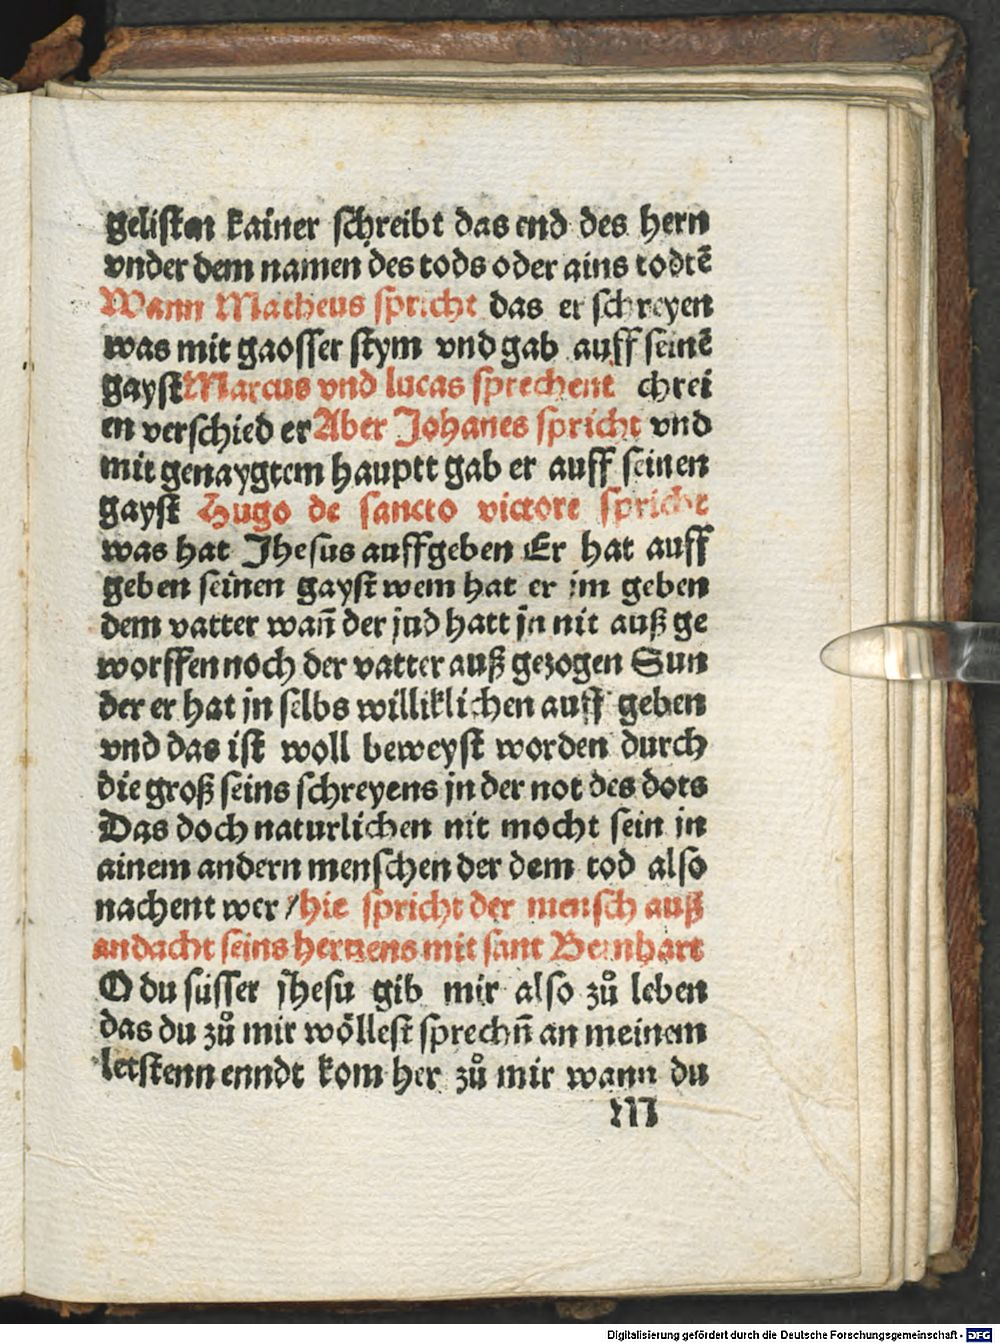 gelisten kainer schreibt das end des hern
vnder dem namen des tods oder ains todtē
Wann Matheus spricht das er schreyen
was mit gaosser stym vnd gab auff seinē
gayst Marcus vnd lucas sprechent chrei
en verschied er Aber Johanes spricht vnd
mit genaygtem hauptt gab er auff seinen
gayst Hugo de sancto victore spricht
was hat Jhesus auffgeben Er hat auff
geben seinen gayst wem hat er im geben
dem vatter wañ der jud hatt jn nit auß ge
worffen noch der vatter auß gezogen Sun
der er hat jn selbs williklichen auff geben
vnd das ist woll beweyst worden durch
die groß seins schreyens jn der not des dots
Das doch naturlichen nit mocht sein in
ainem andern menschen der dem tod also
nachent wer / hie spricht der mensch auß
andacht seins hertzens mit sant Bernhart
O du süsser jhesu gib mir also zů leben
das du zů mir wöllest sprechñ an meinem
letstenn enndt kom her zů mir wann du
M
Digitalisierung gefördert durch die Deutsche Forschungsgemeinschaft - DFG